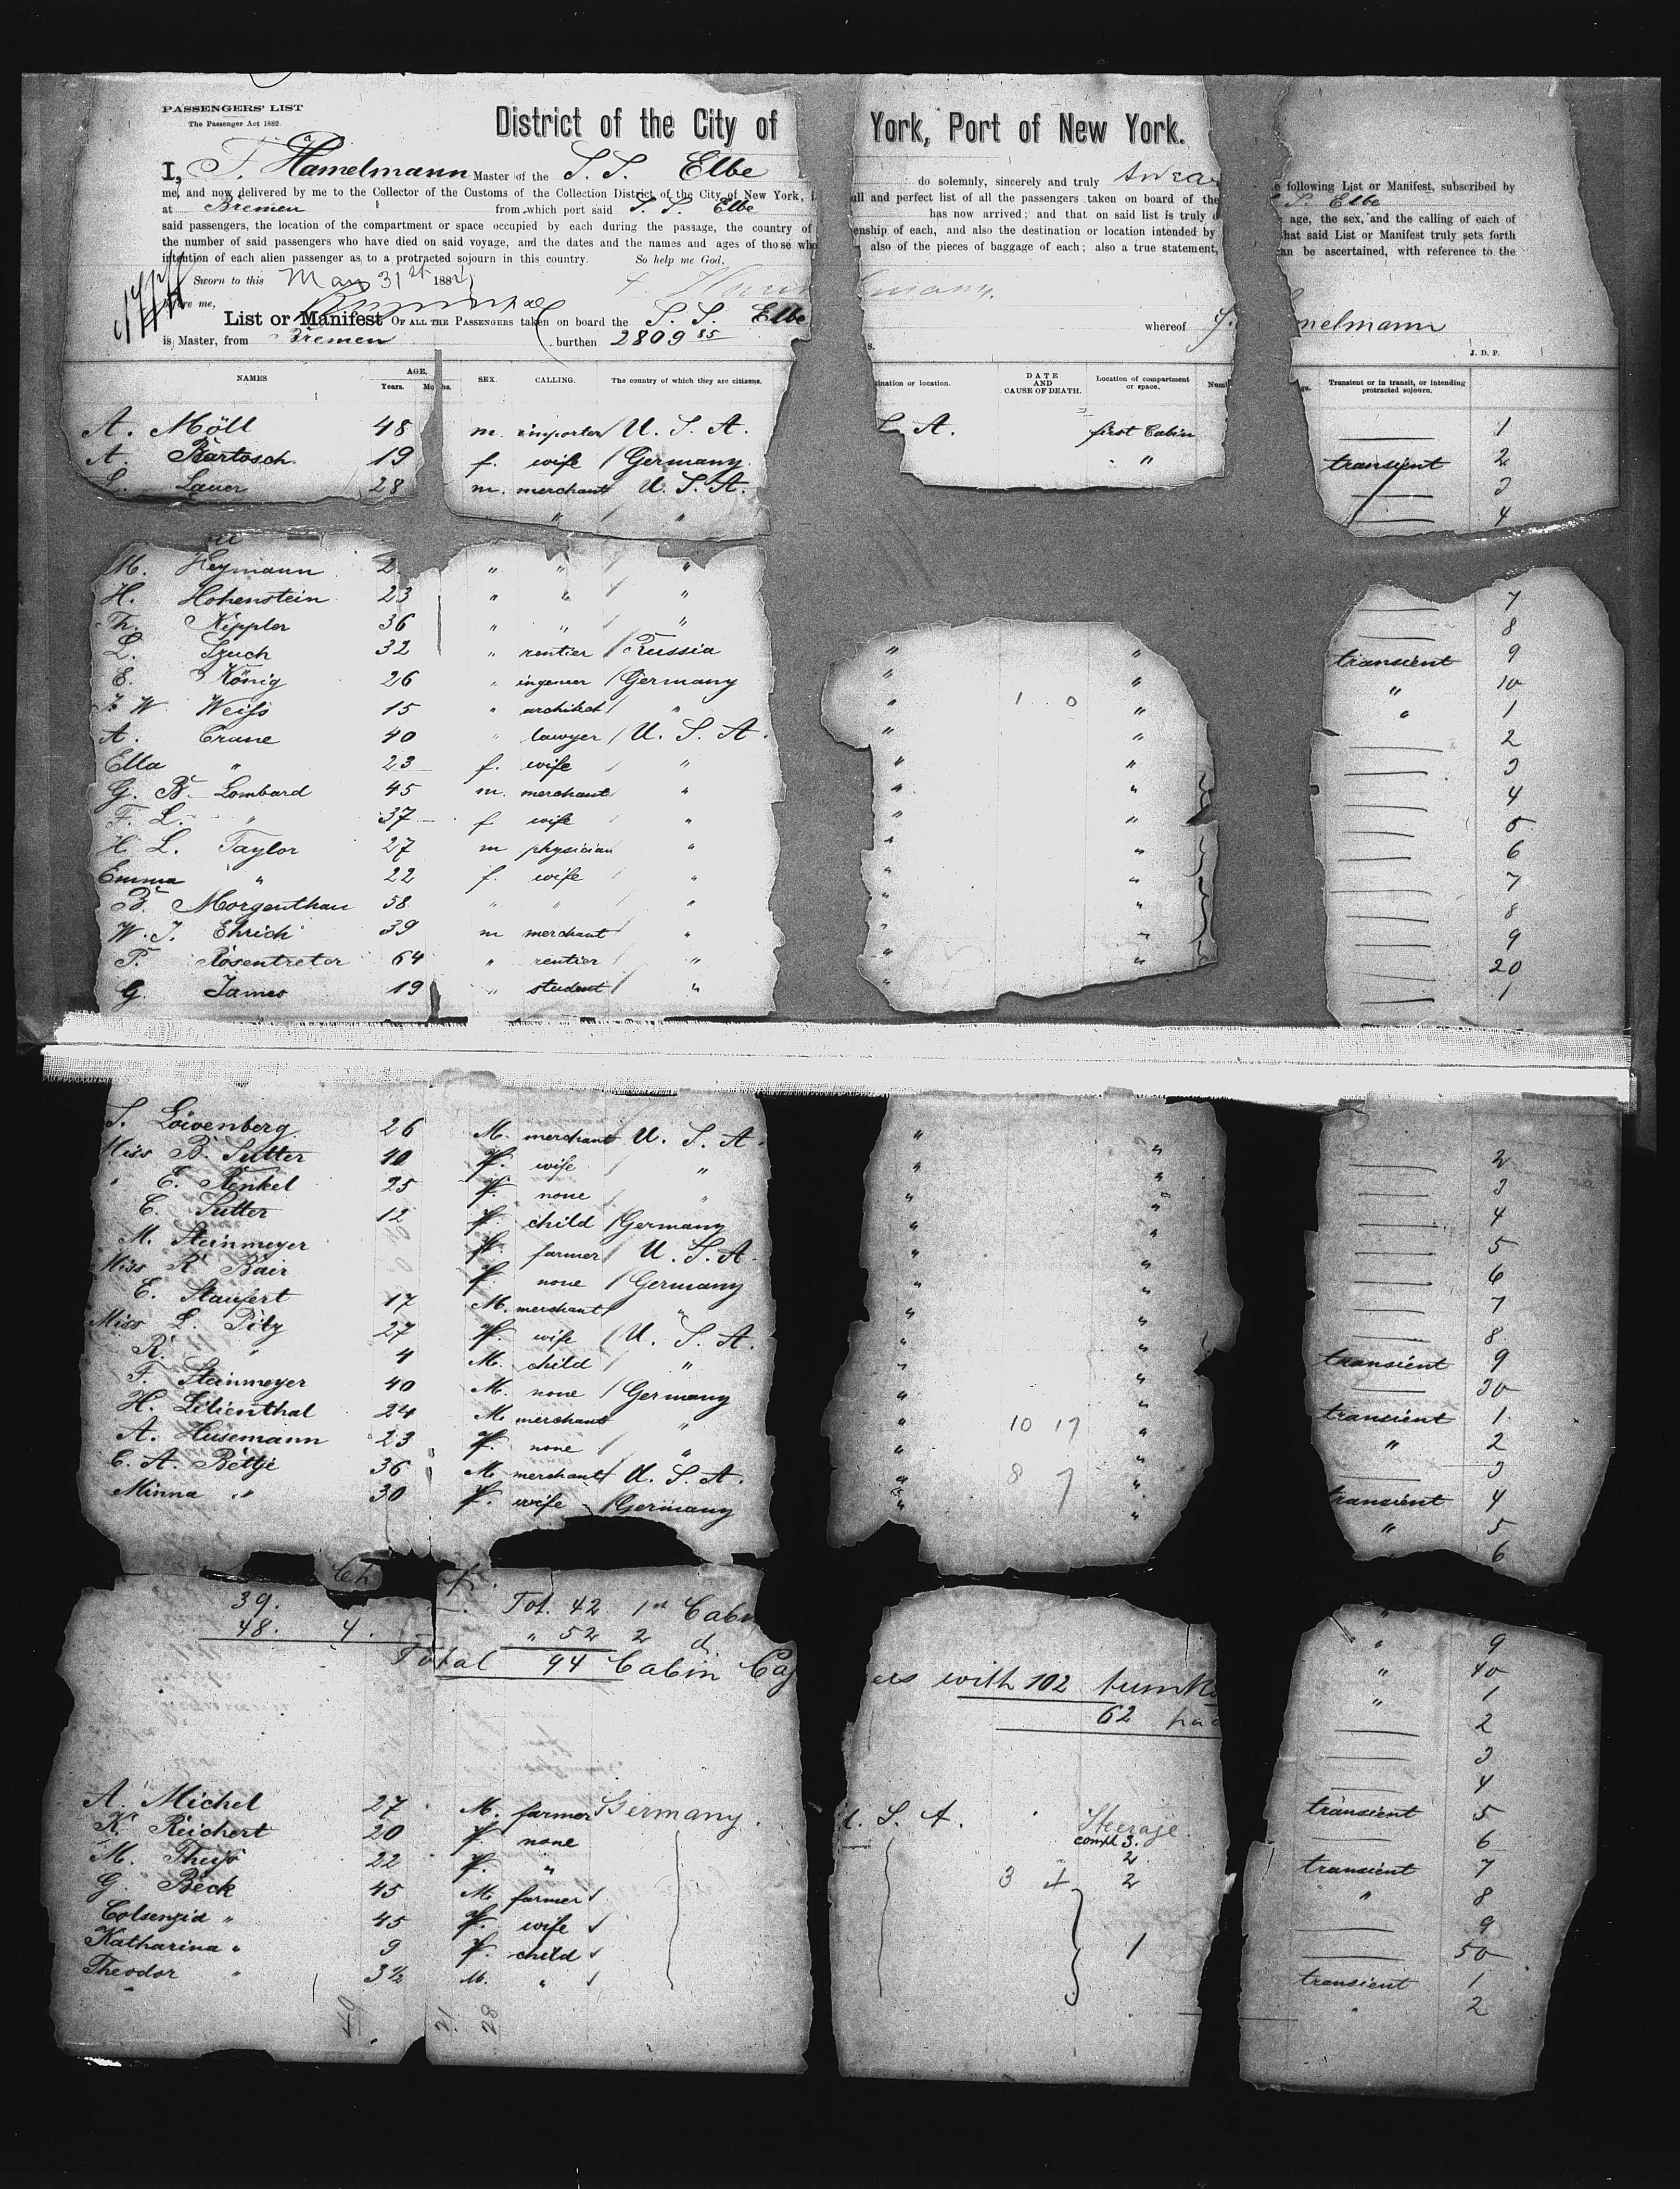 PASSENGERS' LIST
The Passenger Act 1882.
District of the City of York, Port of New York.
I, F. Hamelmann Master of the S. S. Elbe do solemnly, sincerely and truly
me, and now delivered by me to the Collector of the Customs of the Collection District of the City of New York, full and perfect list of all the passengers taken on board of the following List or Manifest, subscribed by
at Bremen from which port said S. S. Elbe has now arrived; and that on said list is truly age, the sex, and the calling of each of
said passengers, the location of the compartment or space occupied by each during the passage, the country of enship of each, and also the destination or location intended by that said List or Manifest truly sets forth
the number of said passengers who have died on said voyage, and the dates and the names and ages of those who also of the pieces of baggage of each; also a true statement, can be ascertained, with reference to the
intention of each alien passenger as to a protracted sojourn in this country. So help me God,
Sworn to this May 31st 188
before me,
List or Manifest OF ALL THE PASSENGERS taken on board the S. S. Elbe whereof F. melmann
is Master, from Bremen burthen 2809 85
J. D. P.
NAMES AGE, Years. Months. SEX. CALLING. The country of which they are citizens. ination or location. DATE AND CAUSE OF DEATH. Location of compartment or space. Numb ge. Transient or in transit, or intending protracted sojourn.
A. Möll 48 m. importer U. S. A. S. A. first Cabin 1
A. Bartosch 19 f. wife Germany " transient 2
L. Lauer 28 m. merchant U. S. A. 3
" " 4
M. Heymann 2 " " "
H. Hohenstein 23 " " " 7
Th. Keppler 36 " " " 8
L. Szuch 32 " rentier Russia " " transient 9
E. König 26 " ingeneur Germany " " " 10
F. W. Weiss 15 " architect " " 1 0 " " 1
A. Crane 40 " lawyer U. S. A. " " 2
Ella " 23 f. wife " " " 3
G. B. Lombard 45 m. merchant " " " 4
F. L. " 37 f. wife " " " 5
H. L. Taylor 27 m physician " " " 6
Emma " 22 f. wife " " " 7
B. Morgenthau 58 " " " " " 8
W. J. Ehrich 39 m merchant " " " 9
P. Rosentreter 64 " rentier " " " 20
G. James 19 " student " " 1
S. Löwenberg 26 M. merchant U. S. A. " " 2
Miss B. Sutter 40 F. wife " " " 3
" E. Renkel 25 F. none " " " 4
E. Sutter 12 F. child Germany " " 5
M. Steinmeyer F. farmer U. S. A. " " 6
Miss R. Bair F. none Germany " " 7
E. Staufert 17 M. merchant " " " 8
Miss L. Pitz 27 F. wife U. S. A. " " transient 9
R. " 4 M. child " " " 30
F. Steinmeyer 40 M. none Germany " " transient 1
H. Lilienthal 24 M. merchant " " 10 17 " " 2
A. Husemann 23 F. none " " " 3
E. A. Bettje 36 M. merchant U. S. A. " 8 7 " transient 4
Minna " 30 F. wife Germany " " " 5
6
Ch f.
39. Tot. 42 1st Cab
48. 4. " 52 2 d " 9
Total 94 Cabin ers with 102 trunks " 40
62 " 1
2
3
4
A. Michel 27 M. farmer Germany. S. A. Steerage. transient 5
K. Reichert 20 F. none compt 3. 6
M. Theiss 22 F. " 2 transient 7
G. Beck 45 M. farmer 3 4 2 " 8
" 45 F. wife 9
Katharina " 9 F. child 1 50
Theodor " 3½ M. " transient 1
49 21 28 " 2